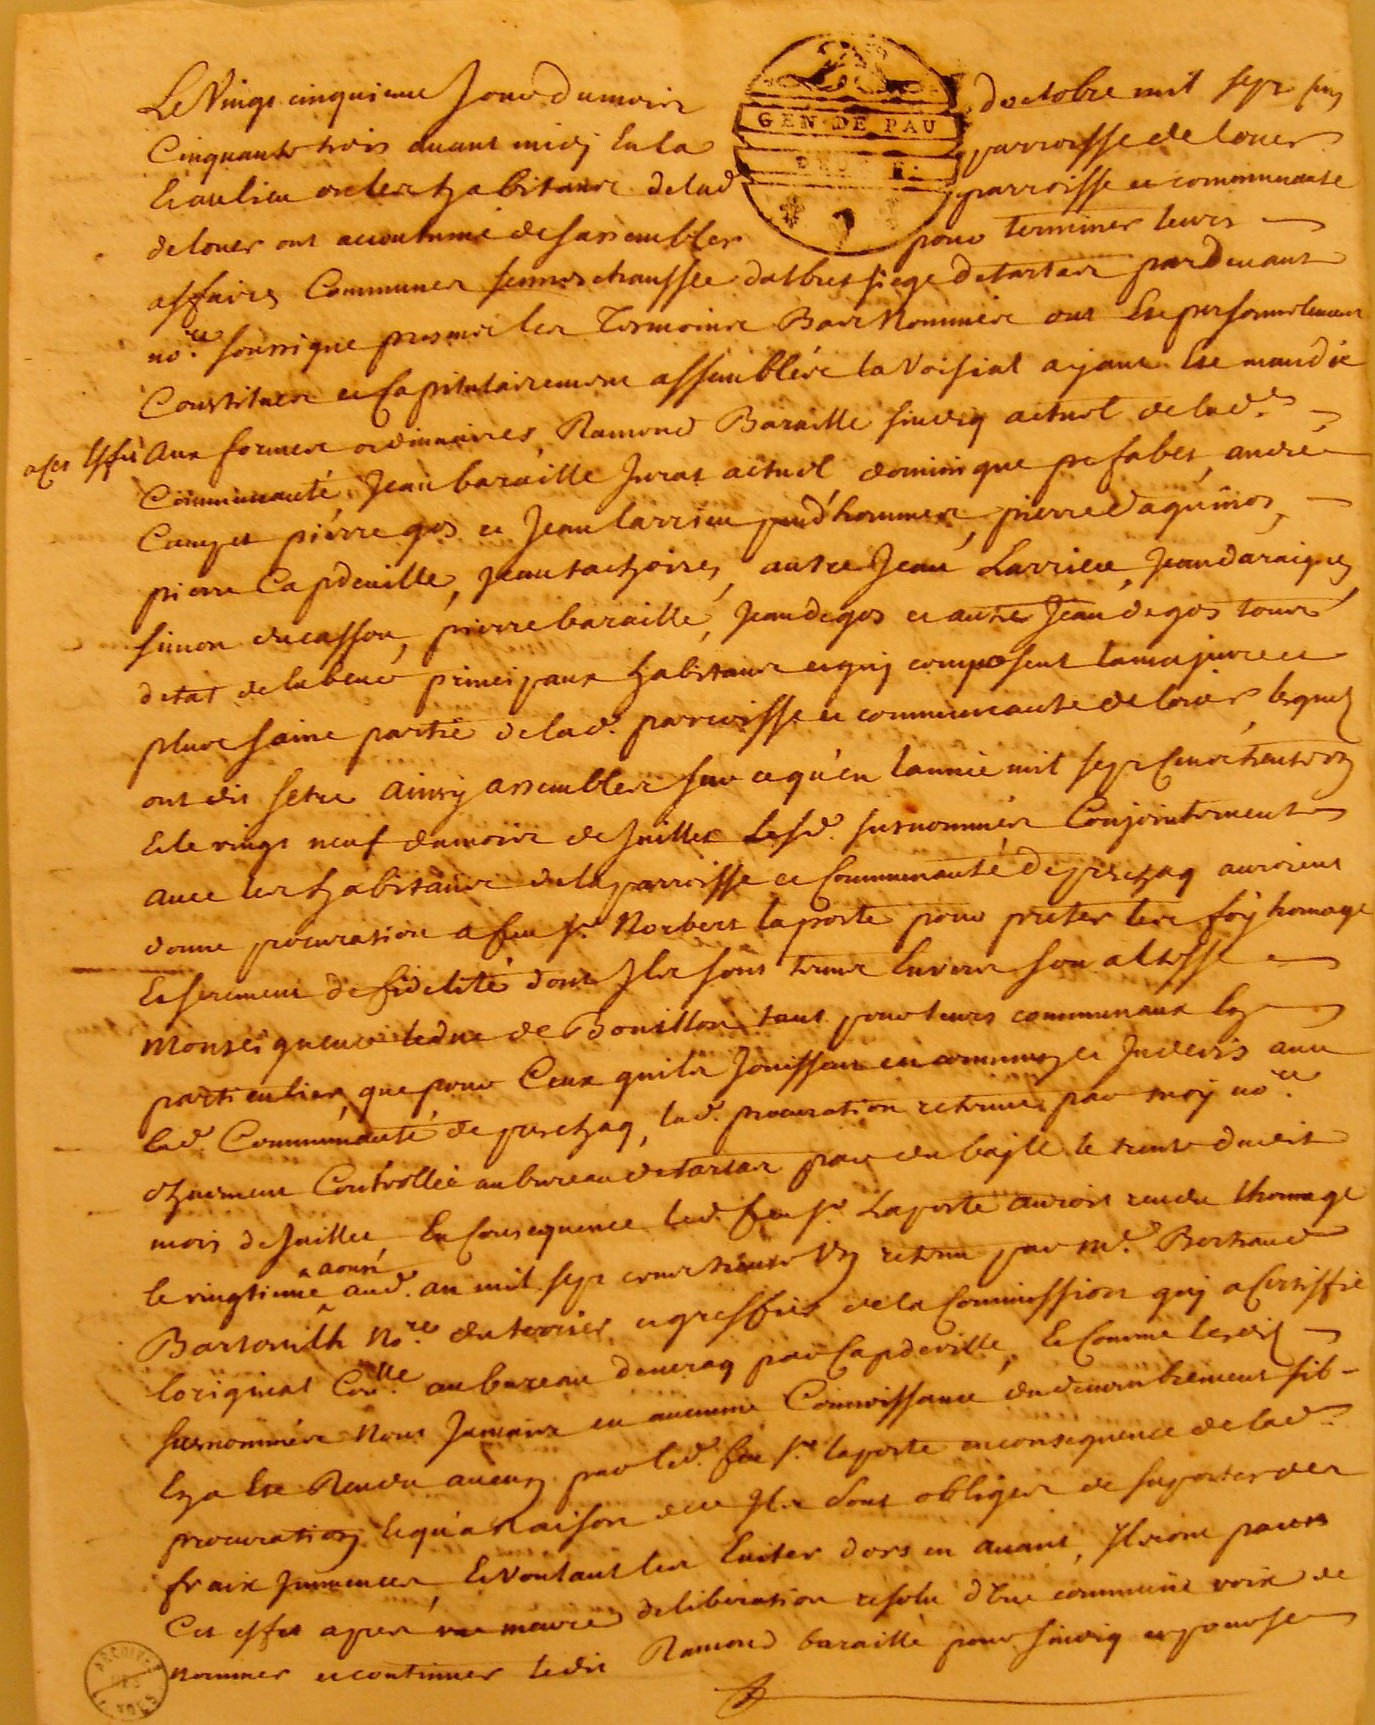 Le Vingt cinquieme Jour du mois doctobre mil sept cens
GEN DE PAU
Cinquante trois avant midy En la parroisse de louer
Et au lieu ou les habitans de lad parroisse et communauté
de louer ont accoutumé de sassembler pour terminer leurs
affaires Communes senneschaussée dalbret siege de tartas pardevant
no.re soussigne presans les Temoins Bas Nommés ont Esté personnelement
Constitués et Capitulairement assemblés la Voisial ayant Esté mandée
a cet effet Aux formes ordinaires, Ramond Baraille sindiq actuel de lad.e
Communauté, Jean baraille Jurat actuel dominique prefabet, andré
Campet pierre gos et Jean larrieu prudhommes, pierre daguinos,
pierre Capdeville, Jean tachoires, autre Jean Larrieu, Jean daraignes
simon ducassou, pierre baraille, Jean degos et autre Jean degos tous
detat de labeur principaux habitans et quy composent la majure et
plus saine partie de lad. parroisse et communauté de louer, lesquels
ont dit setre ainsy assembles sur ce qu'en lannée mil sept Cens trente un
Et le vingt neuf du mois de Juillet Les d. susnommés Conjointement
avec les habitans de la parroisse et Communauté de prechaq auroient
donné procuration a feu s.r Norbert laporte pour preter les foy homage
Et serement de fidelité dont Ils sont tenus Envers son altesse
Monseigneur le duc de Bouillon tant pour leurs communaux En
particulier, que pour Ceux quils Jouissent en commun et Indivis avec
lad. Communauté de prechaq, lad. procuration retenue par moy no.re
duement Controllée au bureau de tartas par du bayle le trente dudit
mois de Juillet En Consequence led. feu s.r Laporte auroit rendu lhomage
le vingtieme aoust aud. an mil sept cens trente un retenu par M.e Bertrand
Bartouilh No.re du terrier et greffier de la Commission quy a Certiffié
loriginal Con.llé au bureau de meraq par Capdeville, Et Comme lesdits
susnommés Nont Jamais eu aucune Connoissance du denombrement sil
En a Esté Rendu aucun par led. feu s.r laporte en consequence de lad.
procuration Et qu'a Raison de ce Ils sont obligés de suporter des
fraix Immences, Et Voulant les Eviter dors en avant, Ils ont pour
Cet effet apres une meure deliberation resolu d'Une commune voix de
nommer et continuer ledit Ramond baraille pour sindiq et pour se